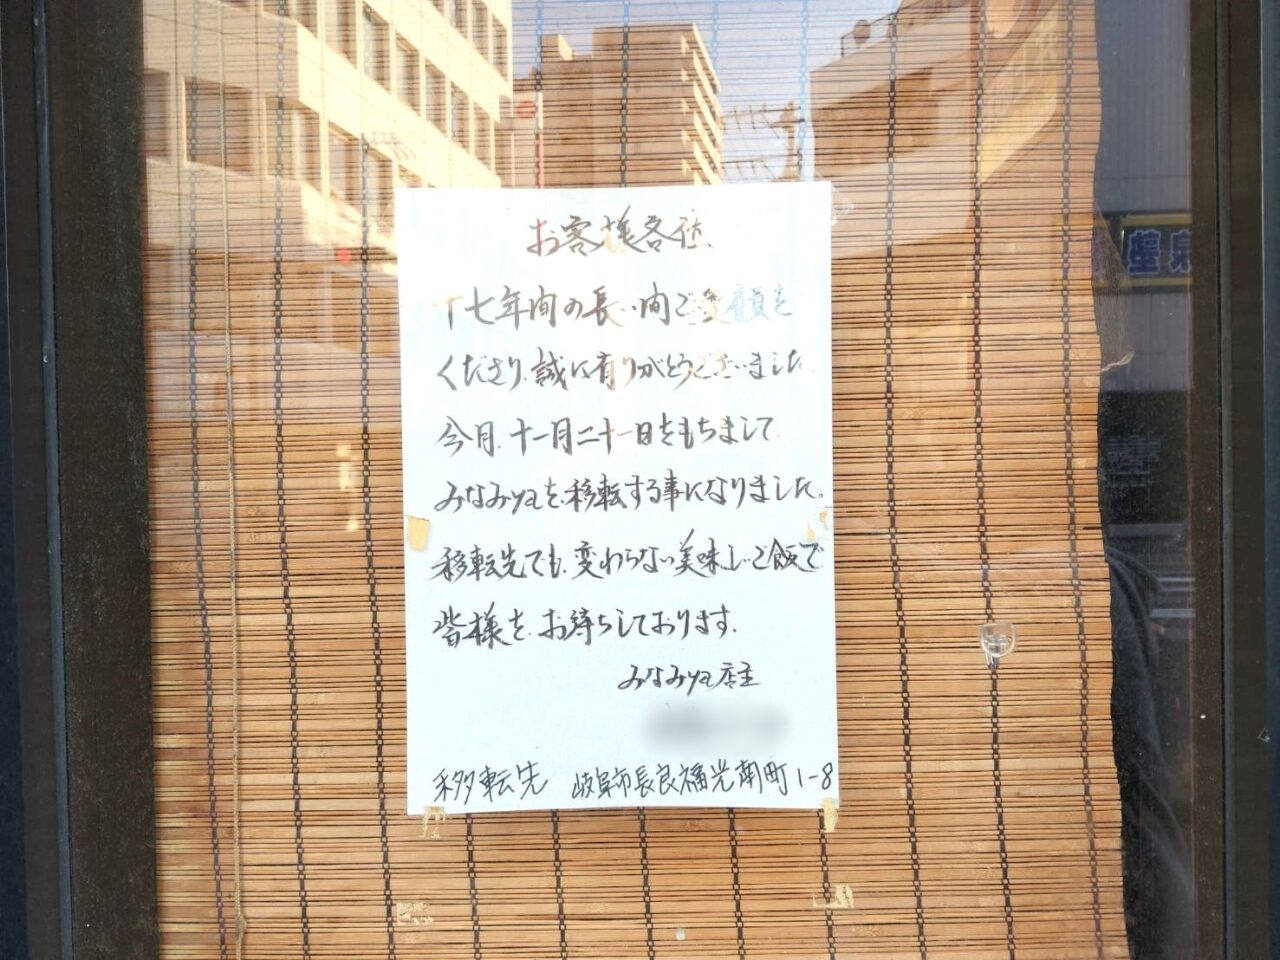 お客様各位
十七年間の長い間ご愛顧を
くださり、誠に有りがとうございました。
今月、十一月二十一日をもちまして
みなみyaを、移転する事になりました。
移転先でも、変わらない美味しいご飯で
皆様を、お待ちしております。
みなみya店主
移転先 岐阜市長良福光南町1-8